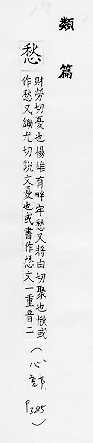 類篇
愁
財勞切憂也揚雄有畔牢愁又將由切聚也或
作愁又鋤尤切說文憂也或書作文一重音二（心部
P385）